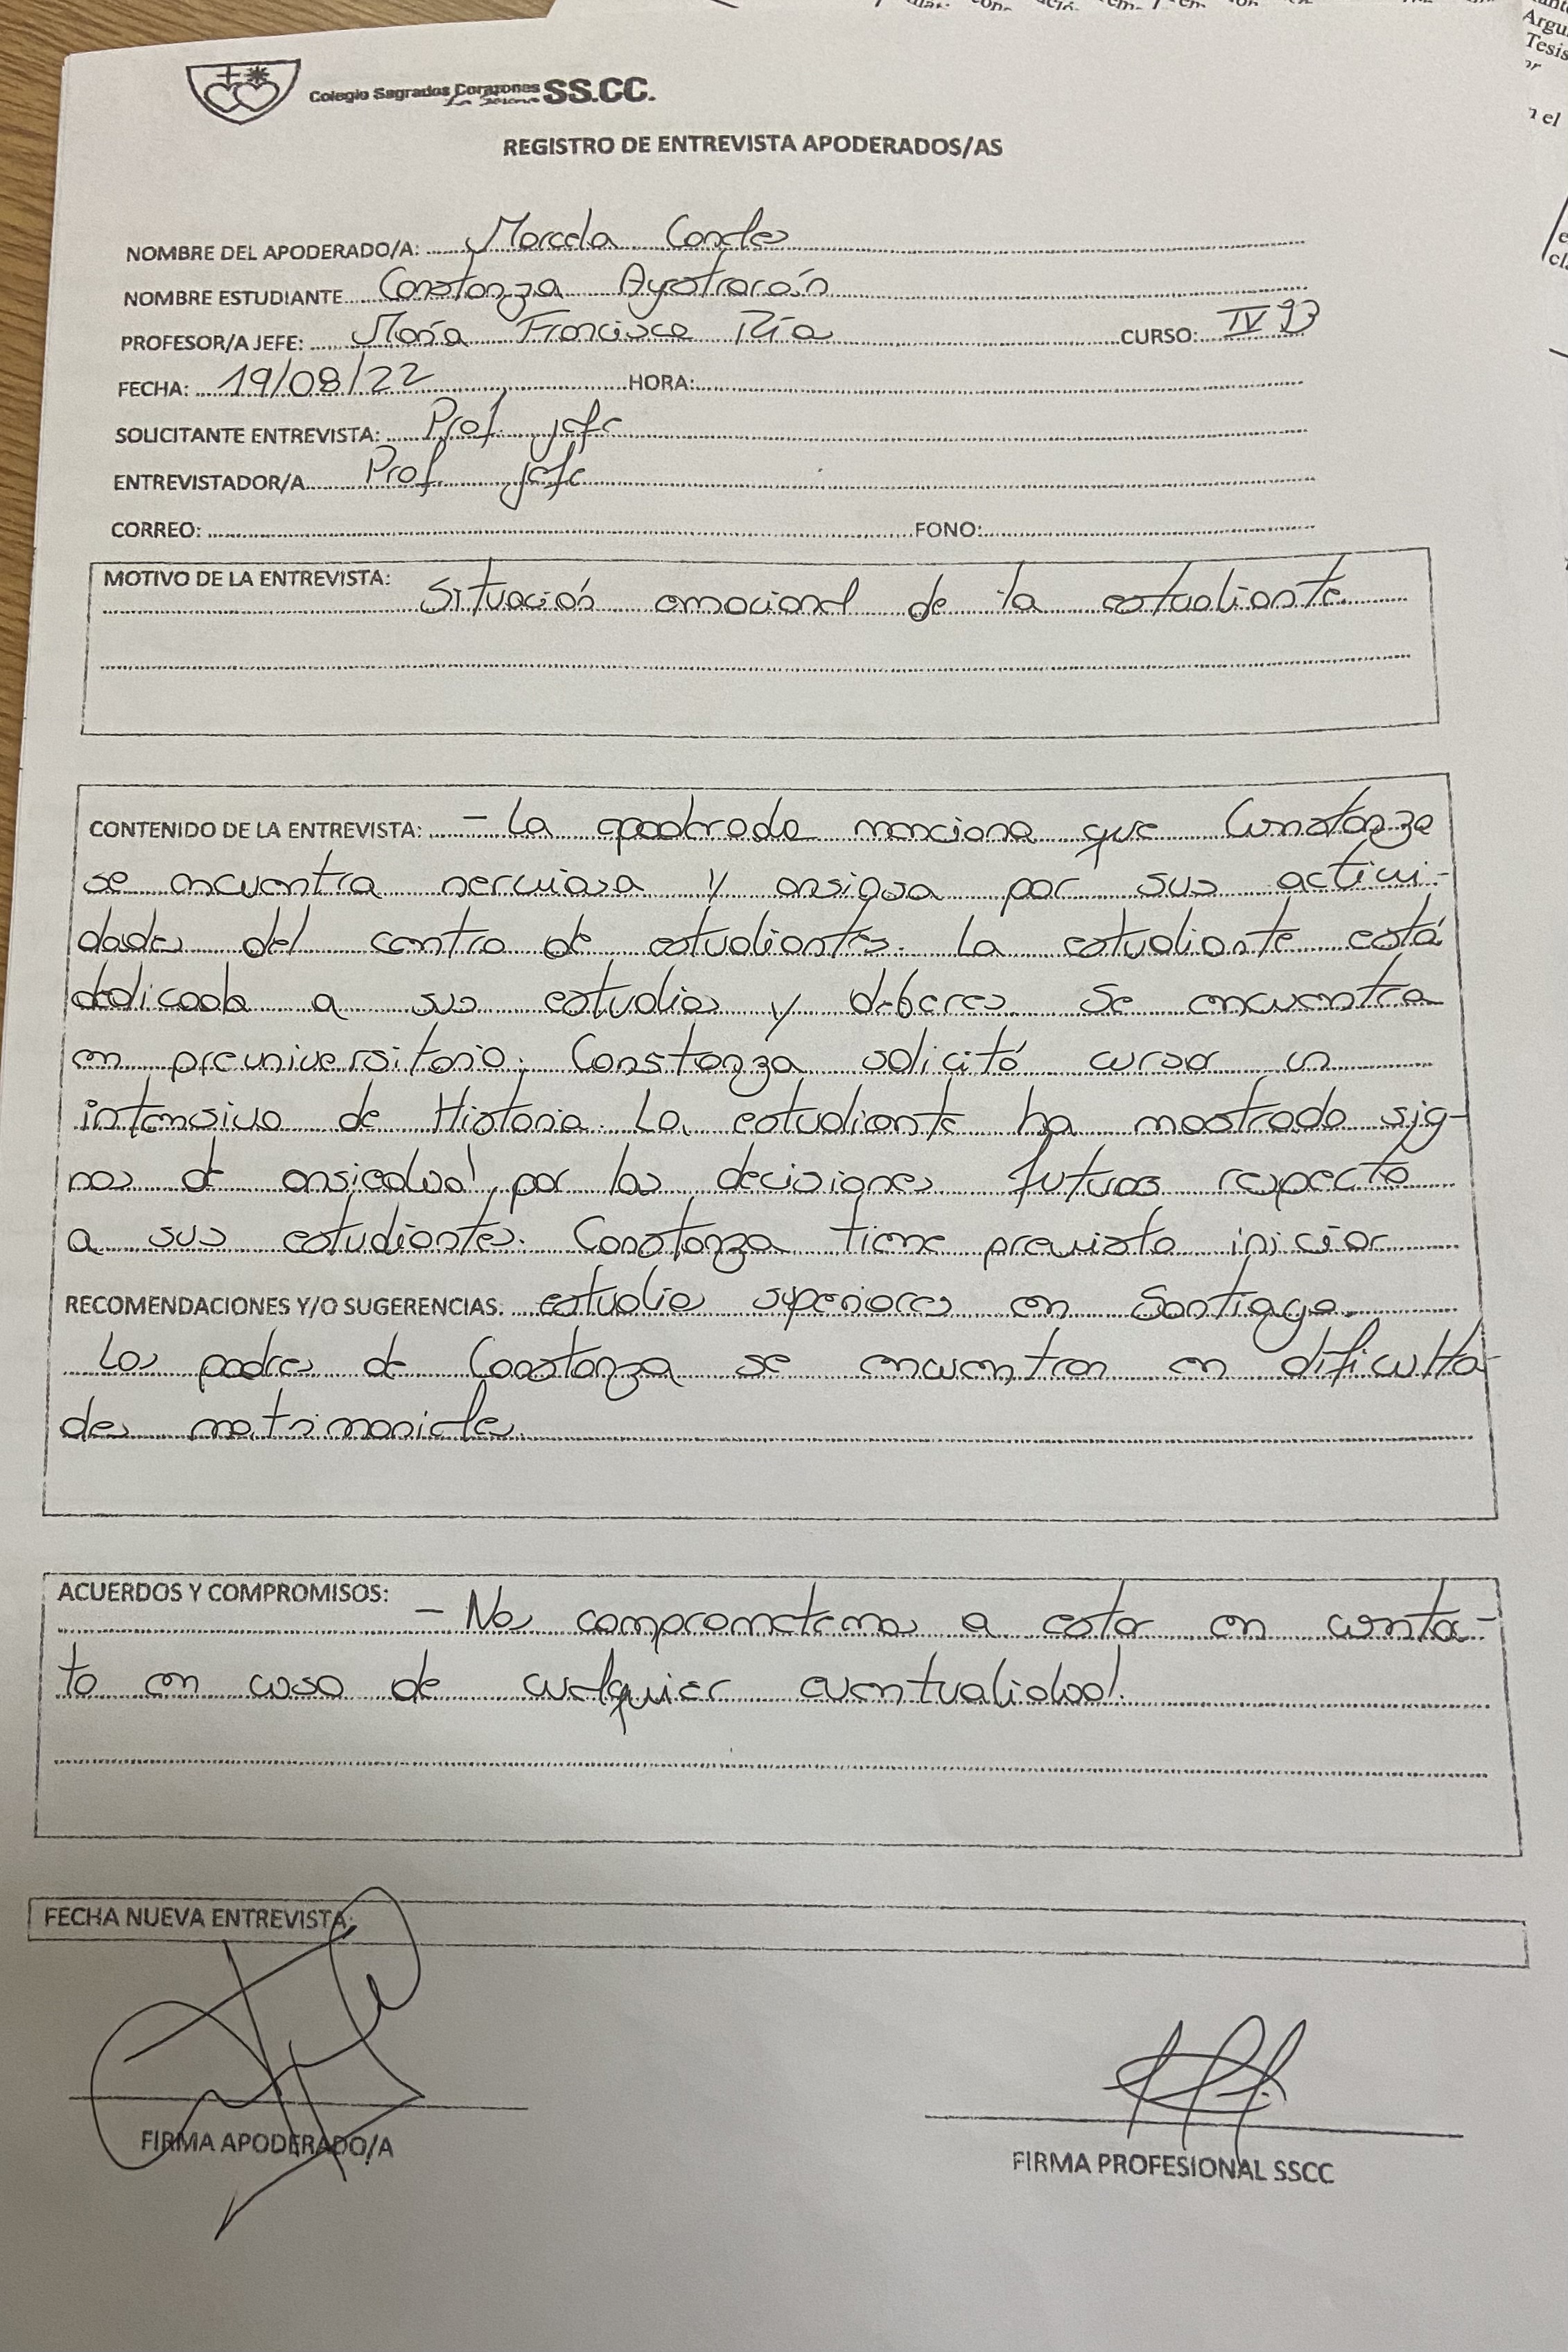 Colegio Sagrados Corazones SS.CC.
La Serena
REGISTRO DE ENTREVISTA APODERADOS/AS
NOMBRE DEL APODERADO/A: Marcela
NOMBRE ESTUDIANTE Constanza
PROFESOR/A JEFE: María Francisca CURSO: IV
FECHA: 19/08/22 HORA:
SOLICITANTE ENTREVISTA: Prof. jefe
ENTREVISTADOR/A Prof. jefe
CORREO: FONO:
MOTIVO DE LA ENTREVISTA: Situación emocional de la estudiante.
CONTENIDO DE LA ENTREVISTA: - La apoderada menciona que Constanza
se encuentra nerviosa y ansiosa por sus activi-
dades del centro de estudiantes. La estudiante está
dedicada a sus estudios y deberes. Se encuentra
en preuniversitario. Constanza solicitó cursar un
intensivo de Historia. La estudiante ha mostrado sig-
nos de ansiedad por las decisiones futuras respecto
a sus estudiantes. Constanza tiene previsto iniciar
RECOMENDACIONES Y/O SUGERENCIAS. estudios superiores en Santiago.
Los padres de Constanza se encuentran en dificulta-
des matrimoniales.
ACUERDOS Y COMPROMISOS: - Nos comprometemos a estar en conta-
to en caso de cualquier eventualidad.
FECHA NUEVA ENTREVISTA:
FIRMA APODERADO/A
FIRMA PROFESIONAL SSCC